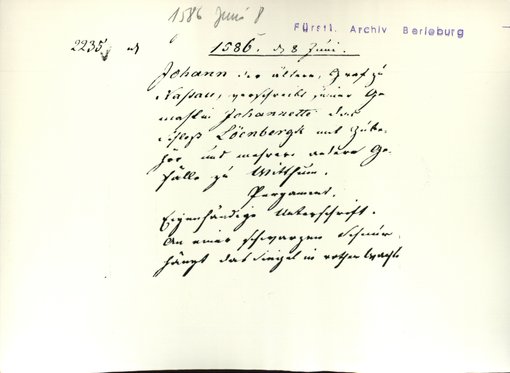 1586 Juni 8
Fürstl. Archiv Berleburg
2235
1586. d 8 Juni.
Johann der ältere, Graf zu
Nassau, verschreibt seiner Ge-
mahlin Johannette das
Schloß Löenbergk mit Zube-
hör und mehrere andere Ge-
fälle zu Witthum.
Pergament.
Eigenhändige Unterschrift.
An einer schwarzen Schnur
hängt das Siegel in rothem Wachs